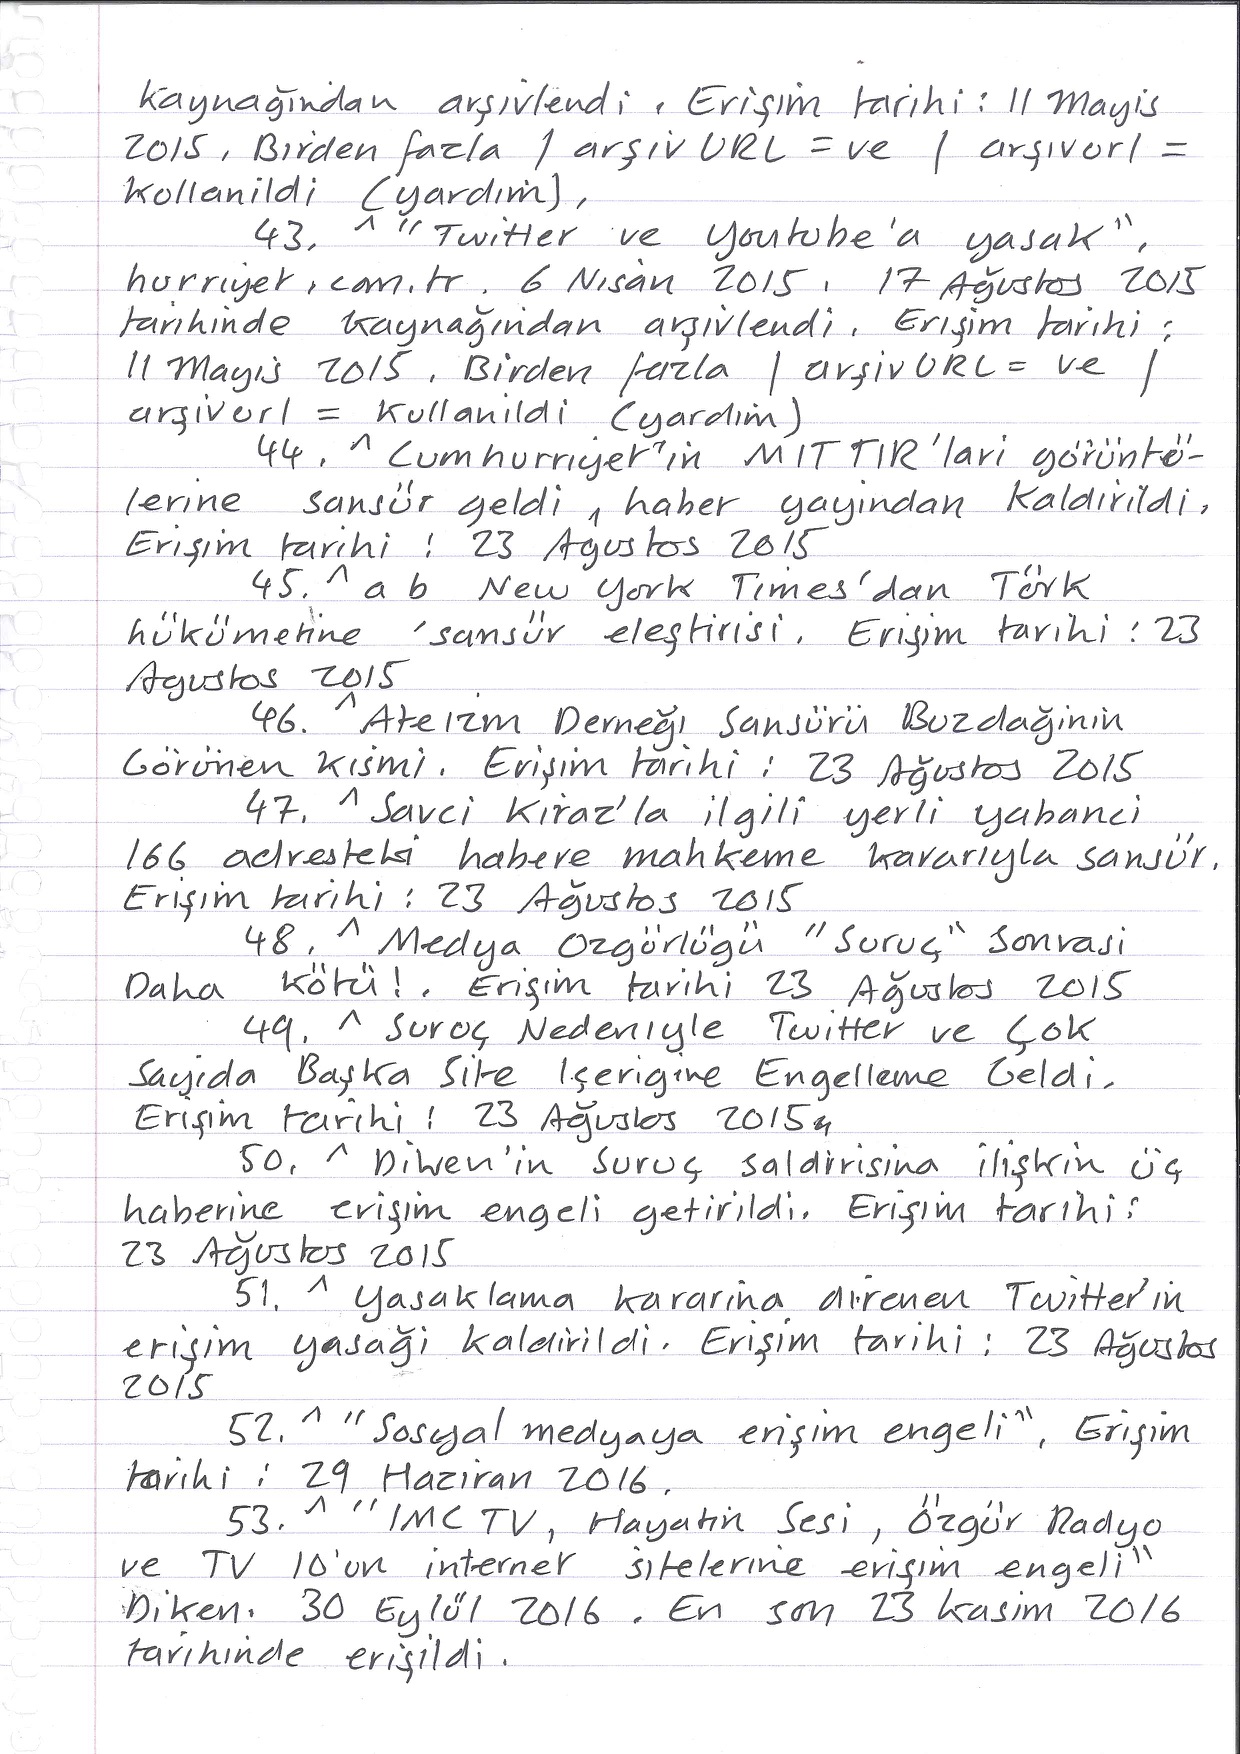 kaynağından arşivlendi. Erişim tarihi: 11 Mayis
2015. Birden fazla | arşivURL = ve | arşivurl =
kullanildi (yardım).
43. ^ "Twitter ve Youtube'a yasak",
hurriyet.com.tr. 6 Nisan 2015. 17 Ağustos 2015
tarihinde kaynağından arşivlendi. Erişim tarihi:
11 Mayis 2015. Birden fazla | arşivURL = ve |
arşivurl = kullanildi (yardım)
44. ^ Cumhurriyet'in MIT TIR'lari görüntü-
lerine sansür geldi, haber yayindan kaldirildi.
Erişim tarihi: 23 Agustos 2015
45. ^ a b New York Times'dan Türk
hükümetine 'sansür eleştirisi. Erişim tarihi: 23
Agustos 2015
46. ^ Ateizm Derneği Sansürü Buzdağinin
Görünen kismi. Erişim tarihi: 23 Ağustos 2015
47. ^ Savci Kiraz'la ilgili yerli yabanci
166 adresteki habere mahkeme kararıyla sansür.
Erişim tarihi: 23 Ağustos 2015
48. ^ Medya Özgürlügü "Suruç" Sonrasi
Daha Kötü!. Erişim tarihi 23 Ağustos 2015
49. ^ Suruç Nedeniyle Twitter ve Çok
Sayida Başka Site Içerigine Engelleme Geldi.
Erişim tarihi: 23 Ağustos 2015.
50. ^ Diken'in Suruç saldirisina ilişkin üç
haberine erişim engeli getirildi. Erişim tarihi:
23 Ağustos 2015
51. ^ Yasaklama kararina direnen Twitter'in
erişim yasaği kaldirildi. Erişim tarihi: 23 Ağustos
2015
52. ^ "Sosyal medyaya erişim engeli", Erişim
tarihi: 29 Haziran 2016.
53. ^ "IMC TV, Hayatin Sesi, Özgür Radyo
ve TV 10'un internet sitelerine erişim engeli"
Diken. 30 Eylül 2016. En son 23 kasim 2016
tarihinde erişildi.